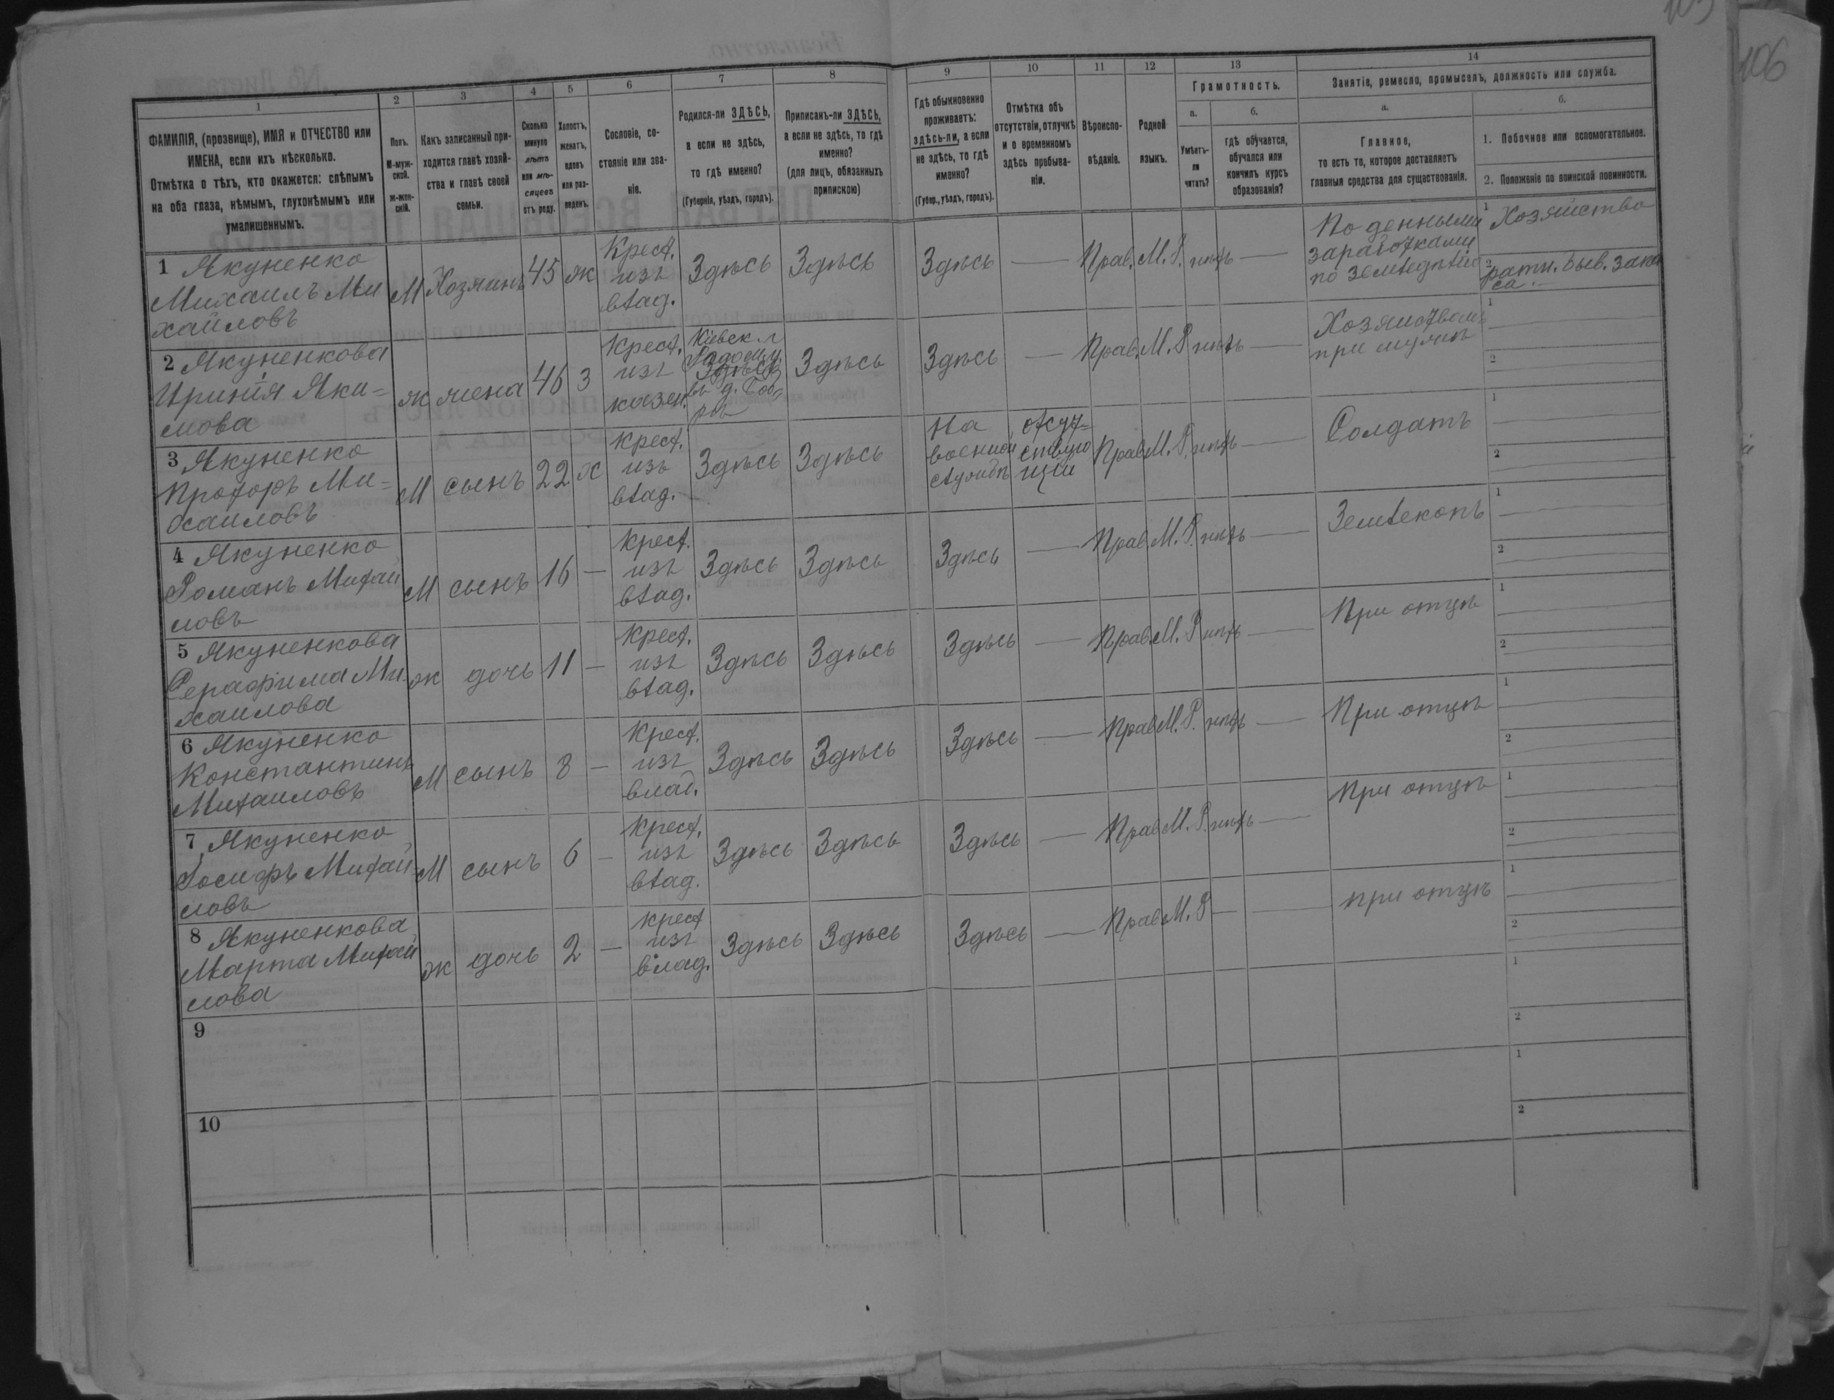 106
1
2
3
4
5
6
7
8
9
10
11
12
13
14
ФАМИЛІЯ, (прозвище), ИМЯ и ОТЧЕСТВО или
ИМЕНА, если ихъ нѣсколько.
Отмѣтка о тѣхъ, кто окажется: слѣпымъ
на оба глаза, нѣмымъ, глухонѣмымъ или
умалишеннымъ.
Полъ.
М-муж-
ской.
Ж-жен-
скій.
Какъ записанный при-
ходится главѣ хозяй-
ства и главѣ своей
семьи.
Сколько
минуло
лѣтъ
или мѣ-
сяцевъ
отъ роду.
Холостъ,
женатъ,
вдовъ
или раз-
веденъ.
Сословіе, со-
стояніе или зва-
ніе.
Родился-ли ЗДѢСЬ,
а если не здѣсь,
то гдѣ именно?
(Губернія, уѣздъ, городъ).
Приписанъ-ли ЗДѢСЬ,
а если не здѣсь, то гдѣ
именно?
(для лицъ, обязанныхъ
припискою)
Гдѣ обыкновенно
проживаетъ:
здѣсь-ли, а если
не здѣсь, то гдѣ
именно?
(Губер., уѣздъ, городъ).
Отмѣтка объ
отсутствіи, отлучкѣ
и о временномъ
здѣсь пребыва-
ніи.
Вѣроиспо-
вѣданіе.
Родной
языкъ.
Грамотность.
а.
Умѣетъ-
ли
читать?
б.
гдѣ обучается,
обучался или
кончилъ курсъ
образованія?
Занятіе, ремесло, промыселъ, должность или служба.
а.
Главное,
то есть то, которое доставляетъ
главныя средства для существованія.
б.
1. Побочное или вспомогательное.
2. Положеніе по воинской повинности.
1 Якуненко
Михаилъ Ми
хайловъ
М Хозяинъ 45 ж
Крест.
изъ
влад.
Здѣсь Здѣсь Здѣсь — Прав. М. Р. нѣтъ —
Поденными
заработками
по земледѣлію
1 Хозяйство
2 ратн. быв. запа
са.
2 Якуненкова
Ириния Яки-
мова
ж жена 46 З
Крест.
изъ
казен.
Кіевск. г
Здѣсь Здѣсь — Прав. М. Р нѣтъ —
Хозяйствомъ
при мужѣ
1
2
3 Якуненко
Прохоръ Ми-
хаиловъ
М сынъ 22 Х
Крест.
изъ
влад.
Здѣсь Здѣсь
На
военной
службѣ
отсут-
ствую
щій
Прав. М. Р. нѣтъ —
Солдатъ
1
2
4 Якуненко
Романъ Михаи
ловъ
М сынъ 16 —
Крест.
изъ
влад.
Здѣсь Здѣсь Здѣсь — Прав. М. Р. нѣтъ —
Землекопъ
1
2
5 Якуненкова
Серафима Ми
хаилова
ж дочь 11 —
Крест.
изъ
влад.
Здѣсь Здѣсь Здѣсь — Прав. М. Р нѣтъ —
При отцѣ
1
2
6 Якуненко
Константинъ
Михаиловъ
М сынъ 8 —
Крест.
изъ
влад.
Здѣсь Здѣсь Здѣсь — Прав. М. Р. нѣтъ —
При отцѣ
1
2
7 Якуненко
Іосифъ Михаи
ловъ
М сынъ 6 —
Крест.
изъ
влад.
Здѣсь Здѣсь Здѣсь — Прав. М. Р. нѣтъ —
При отцѣ
1
2
8 Якуненкова
Марта Михаи
лова
ж дочь 2 —
Крест
изъ
влад.
Здѣсь Здѣсь Здѣсь — Прав. М. Р — —
при отцѣ
1
2
9
1
2
10
1
2